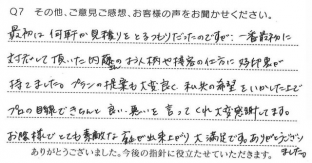 Q7 その他、ご意見ご感想、お客様の声をお聞かせください。
最初は何軒か見積りをとるつもりだったのですが…一番最初に
対応して頂いた内藤さんのお人柄や接客の仕方に好印象が
持てました。プランの提案も大変良く私共の希望をいかした上で
プロの目線できちんと良い、悪いを言ってくれ大変感謝してます。
お陰様でとても素敵な庭が出来上がり大満足です。ありがとうござい
ました。
ありがとうございました。今後の指針に役立たせていただきます。